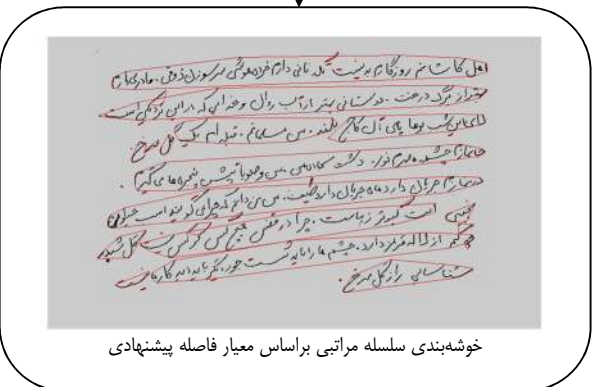 اهل کاشانم روزگارم بد نیست تکه نانی دارم خرده هوشی سر سوزن ذوقی . مادری دارم
بهتر از برگ درخت . دوستانی بهتر از آب روان و خدایی که در این نزدیکی است
لای این شب بوها پای آن کاج بلند . من مسلمانم . قبله ام یک گل سرخ .
جانمازم چشمه مهرم نور . دشت سجاده من . من وضو با تپش پنجره ها می گیرم .
در نمازم جریان دارد ماه جریان دارد طیف . من نمی دانم که چرا می گویند اسب حیوان
نجیبی است کبوتر زیباست . چرا در قفس هیچ کسی کرکس نیست گل شبدر
چه کم از لاله قرمز دارد . چشم ها را باید شست جور دیگر باید دید کار ما نیست
شناسایی راز گل سرخ .
خوشه‌بندی سلسله مراتبی براساس معیار فاصله پیشنهادی